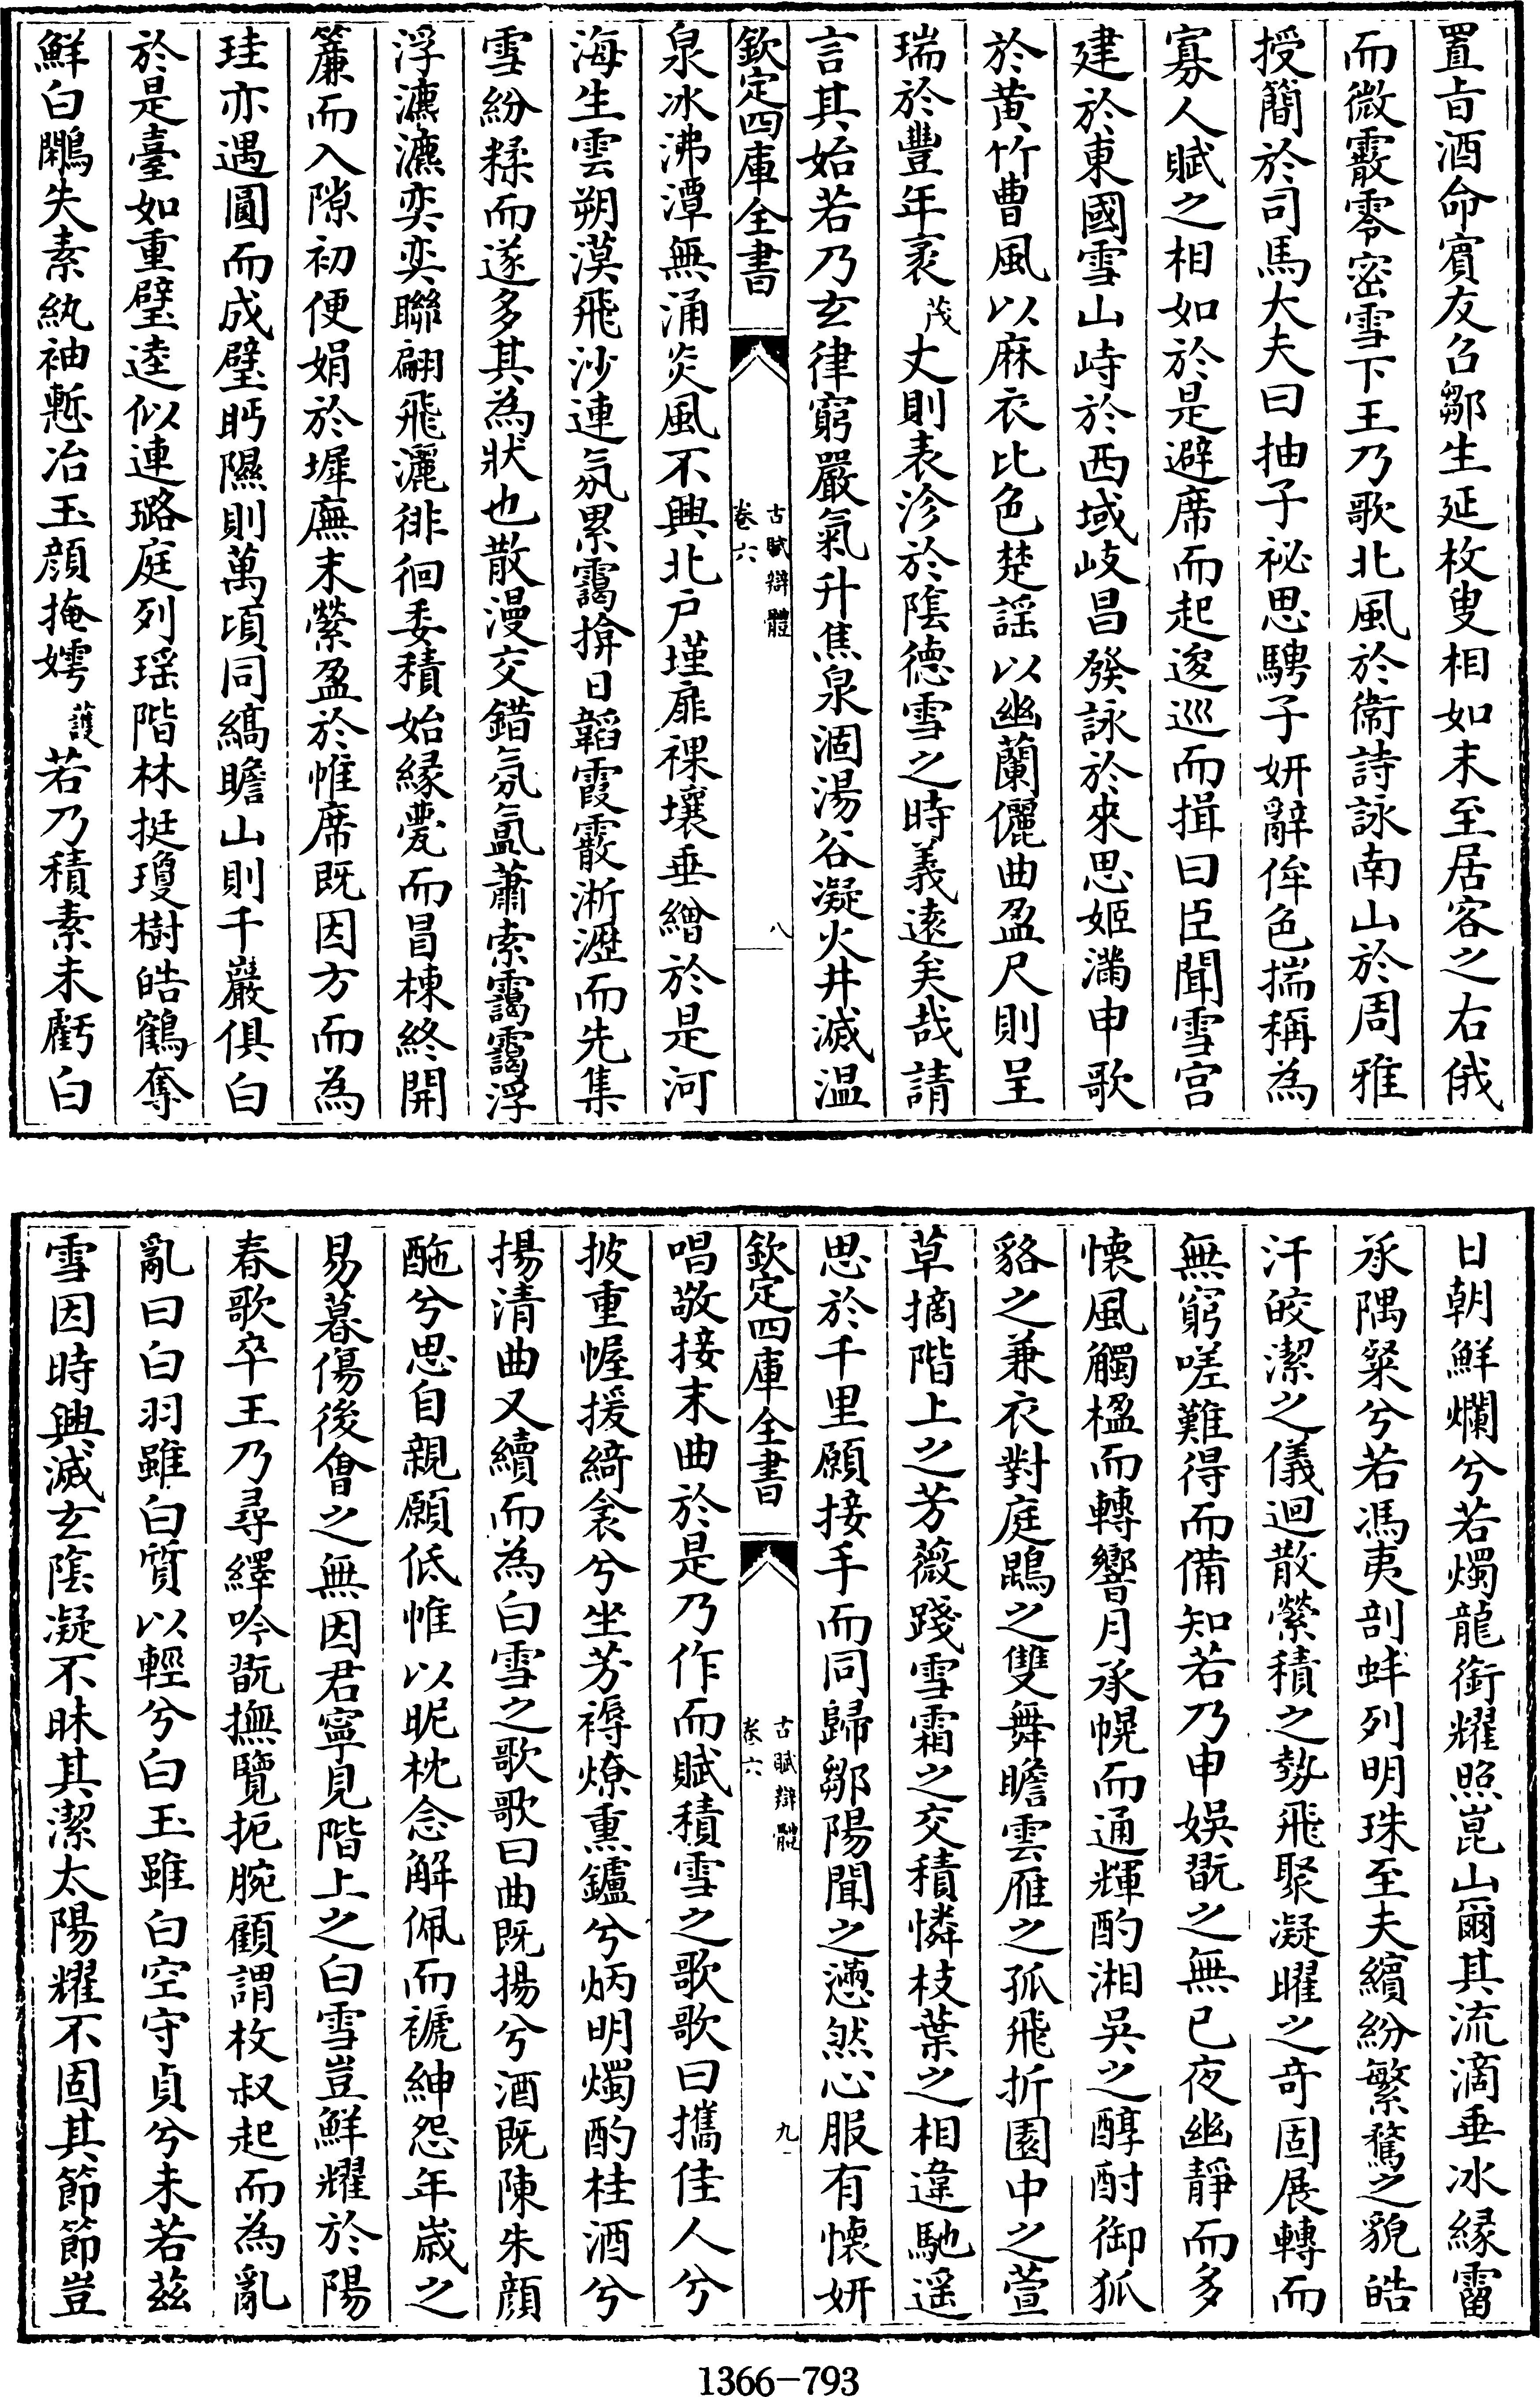 置㫖酒命賓友召鄒生延枚叟相如末至居客之右俄
而微霰零密雪下王乃歌北風於衛詩詠南山於周雅
授簡於司馬大夫曰抽子祕思騁子妍辭侔色揣稱為
寡人賦之相如於是避席而起逡巡而揖曰臣聞雪宫
建於東國雪山峙於西域岐昌發詠於來思姬滿申歌
於黄竹曹風以麻衣比色楚謡以幽蘭儷曲盈尺則呈
瑞於豐年袤茂丈則表沴於隂德雪之時義逺矣哉請
言其始若乃玄律窮嚴氣升焦泉涸湯谷凝火井滅温
欽定四庫全書
古賦辯體
卷六
八
泉冰沸潭無涌炎風不興北户墐扉裸壤垂繒於是河
海生雲朔漠飛沙連氛累靄揜日韜霞霰淅瀝而先集
雪紛糅而遂多其為狀也散漫交錯氛氲蕭索靄靄浮
浮瀌瀌奕奕聯翩飛灑徘徊委積始縁甍而冒棟終開
簾而入隙初便娟於墀廡末縈盈於帷席既因方而為
珪亦遇圓而成璧眄隰則萬頃同縞瞻山則千巖俱白
於是臺如重璧逵似連璐庭列瑶階林挺瓊樹皓鶴奪
鮮白鷴失素紈袖慙冶玉顔掩嫮護若乃積素未虧白
日朝鮮爛兮若燭龍銜耀照崑山爾其流滴垂冰縁霤
承隅粲兮若馮夷剖蚌列明珠至夫繽紛繁騖之貌皓
汗皎潔之儀迴散縈積之勢飛聚凝曜之奇固展轉而
無窮嗟難得而備知若乃申娱翫之無已夜幽靜而多
懐風觸楹而轉響月承幌而通輝酌湘吳之醇酎御狐
貉之兼衣對庭鵾之雙舞瞻雲雁之孤飛折園中之萱
草摘階上之芳薇踐雪霜之交積憐枝葉之相違馳遥
思於千里願接手而同歸鄒陽聞之懣然心服有懐妍
欽定四庫全書
古賦辯體
卷六
九
唱敬接末曲於是乃作而賦積雪之歌歌曰攜佳人兮
披重幄援綺衾兮坐芳褥燎熏鑪兮炳明燭酌桂酒兮
揚清曲又續而為白雪之歌歌曰曲既揚兮酒既陳朱顔
酏兮思自親願低帷以昵枕念解佩而褫紳怨年嵗之
易暮傷後㑹之無因君寧見階上之白雪豈鮮耀於陽
春歌卒王乃尋繹吟翫撫覽扼腕顧謂枚叔起而為亂
亂曰白羽雖白質以輕兮白玉雖白空守貞兮未若兹
雪因時興滅玄隂凝不昧其潔太陽耀不固其節節豈
1366-793